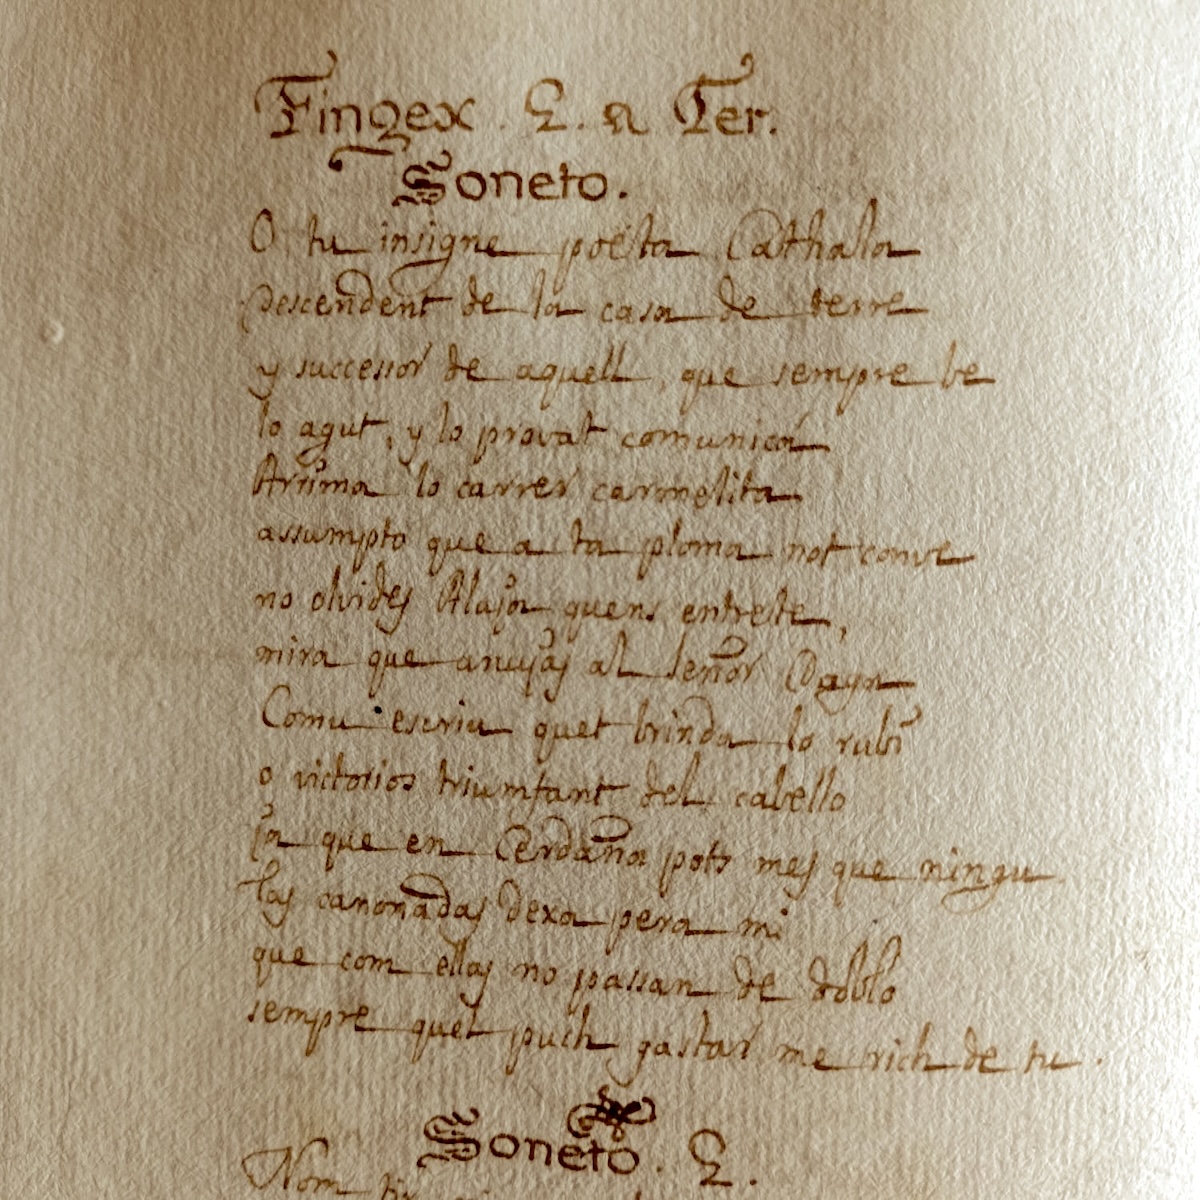 Fingex. E. a Ter.
Soneto.
O tu insigne poéta Cathala
Descendent de la casa de terre
y successor de aquell, que sempre be
lo agut, y lo provat comunicá
Arrima lo carrer carmelita
assumpto que a ta ploma not conve
no olvides Alaja quens entrete,
mira que anujas al señor Dayn
Comu escriu quet brinda lo rubi
o victorios triumfant del cabello
Ja que en Cerdaña pots mes que ningu
las canonadas dexa pera mi
que com ellas no passan de doblo
sempre quel puch gastar me rich de tu.
Soneto. E.
Nom